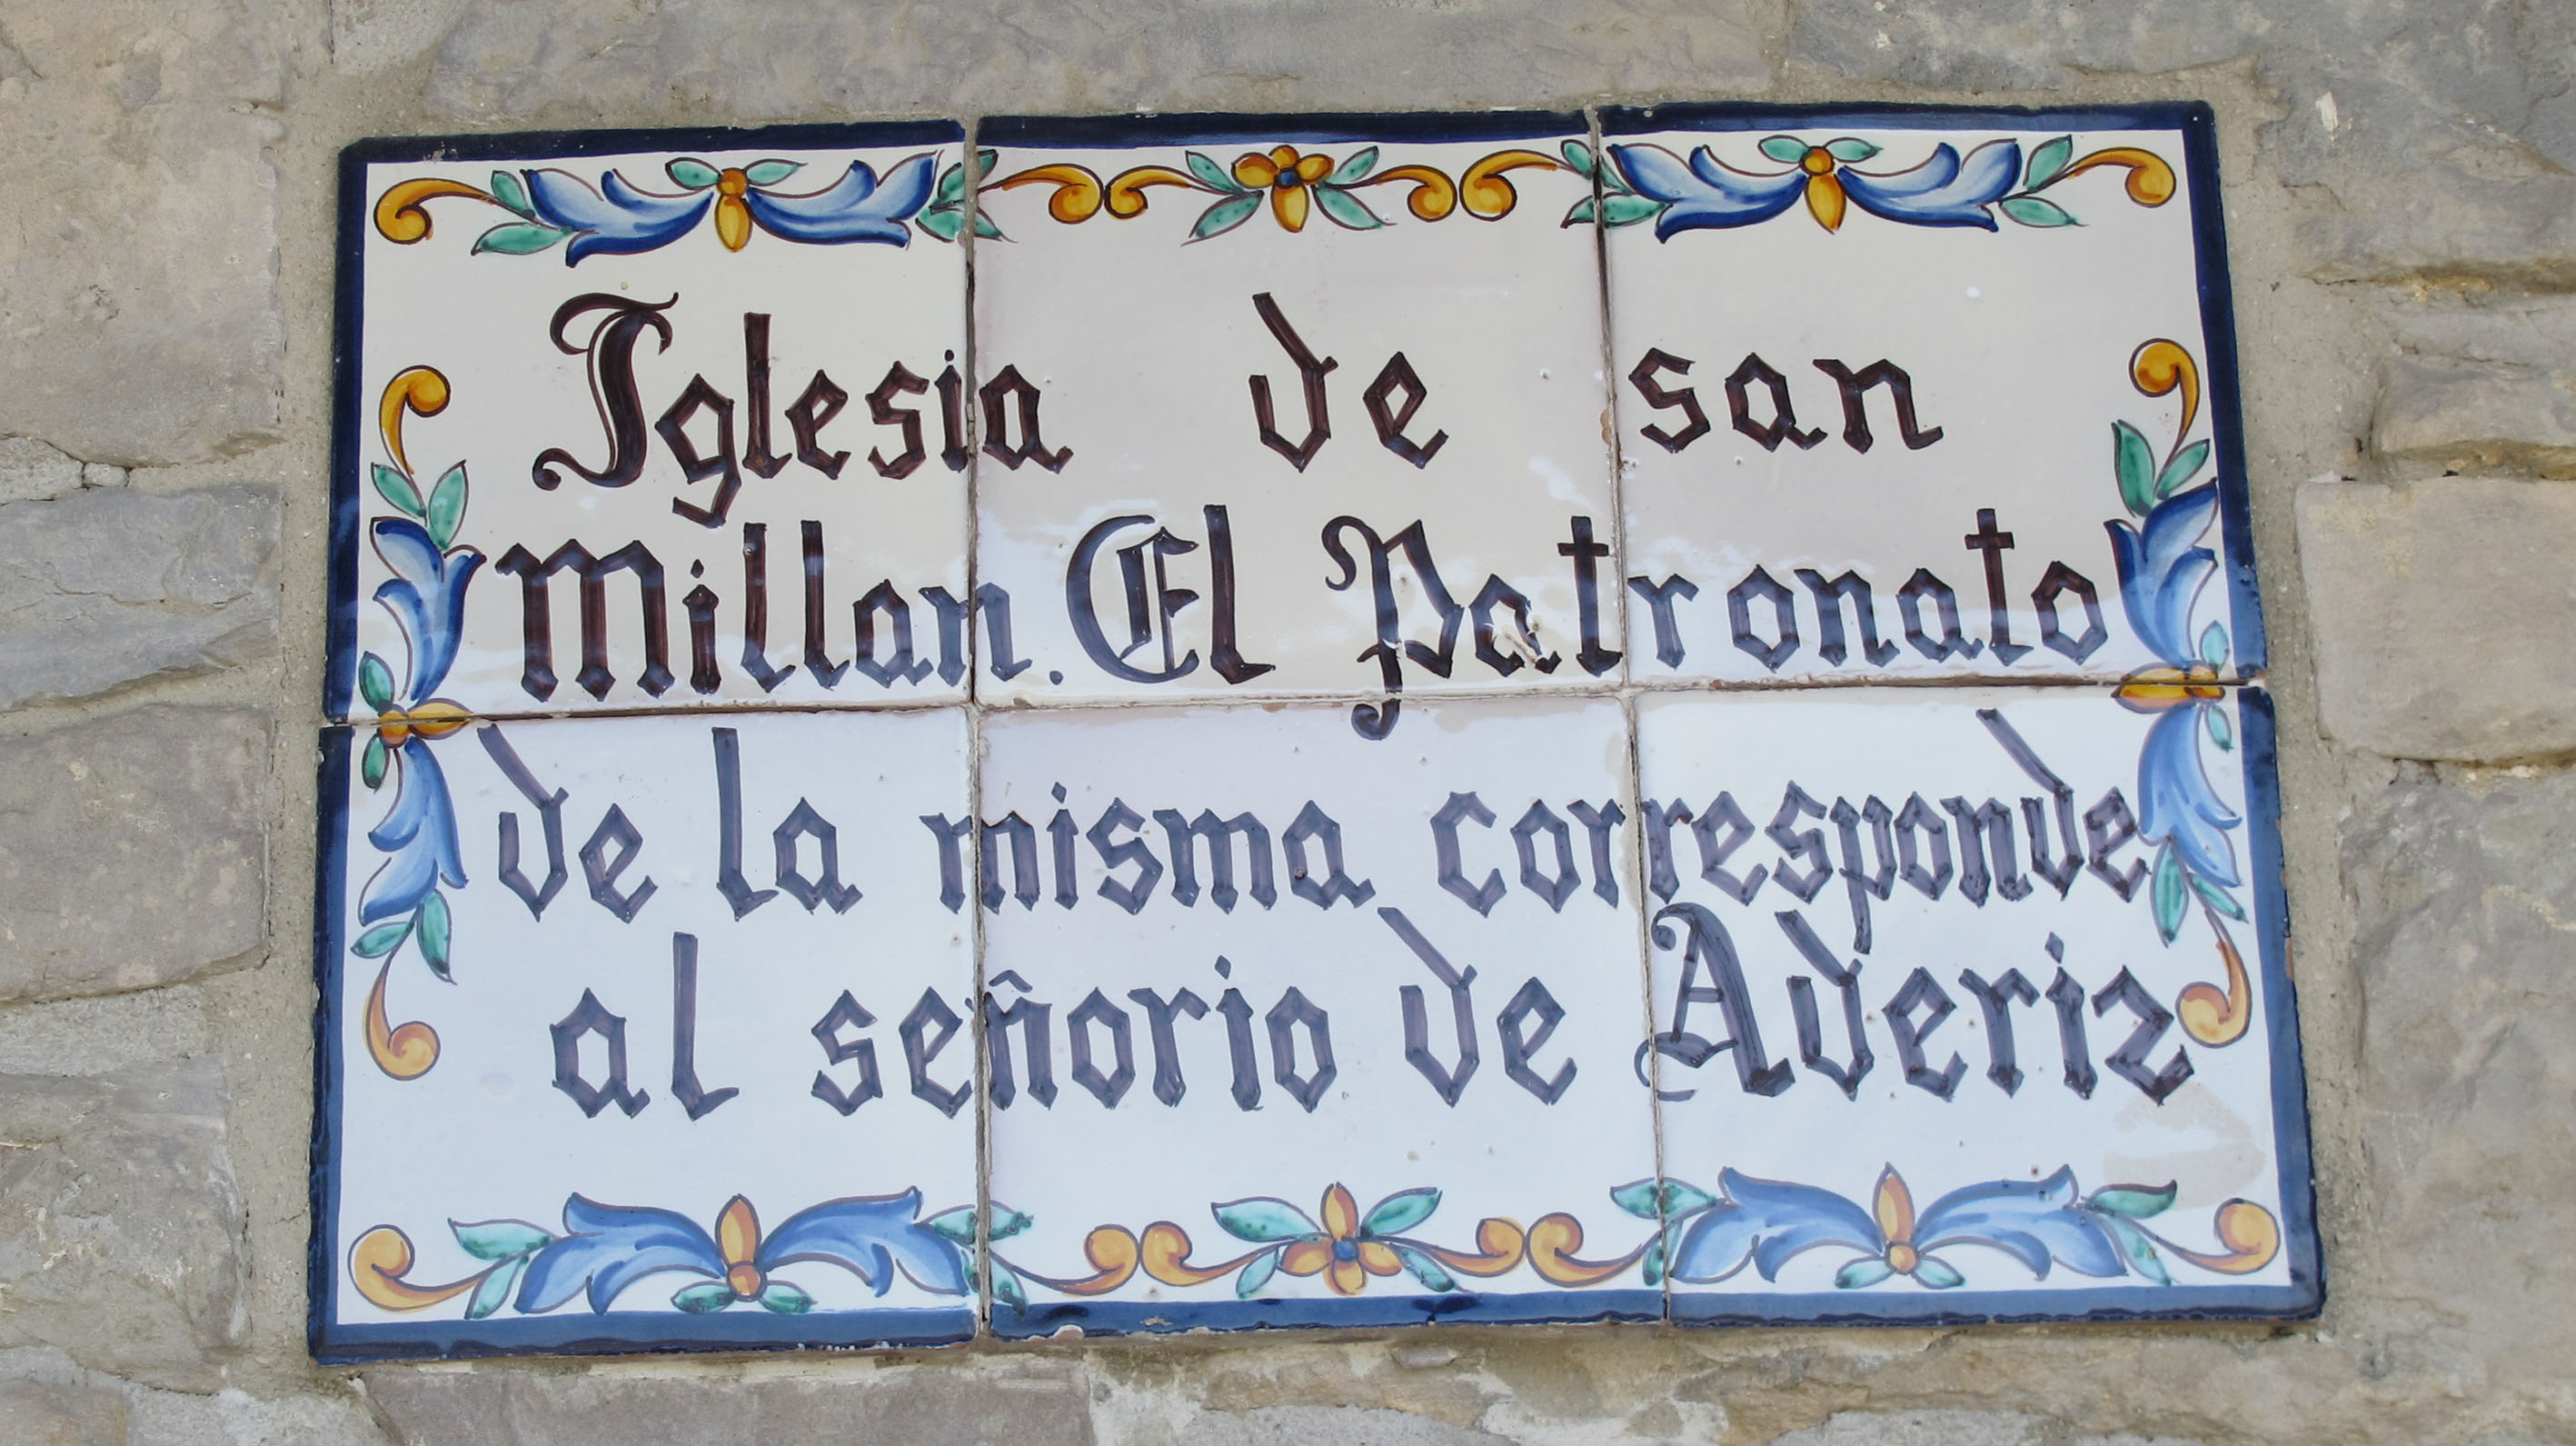 Iglesia de san
Millan. El Patronato
de la misma corresponde
al señorio de Aderiz